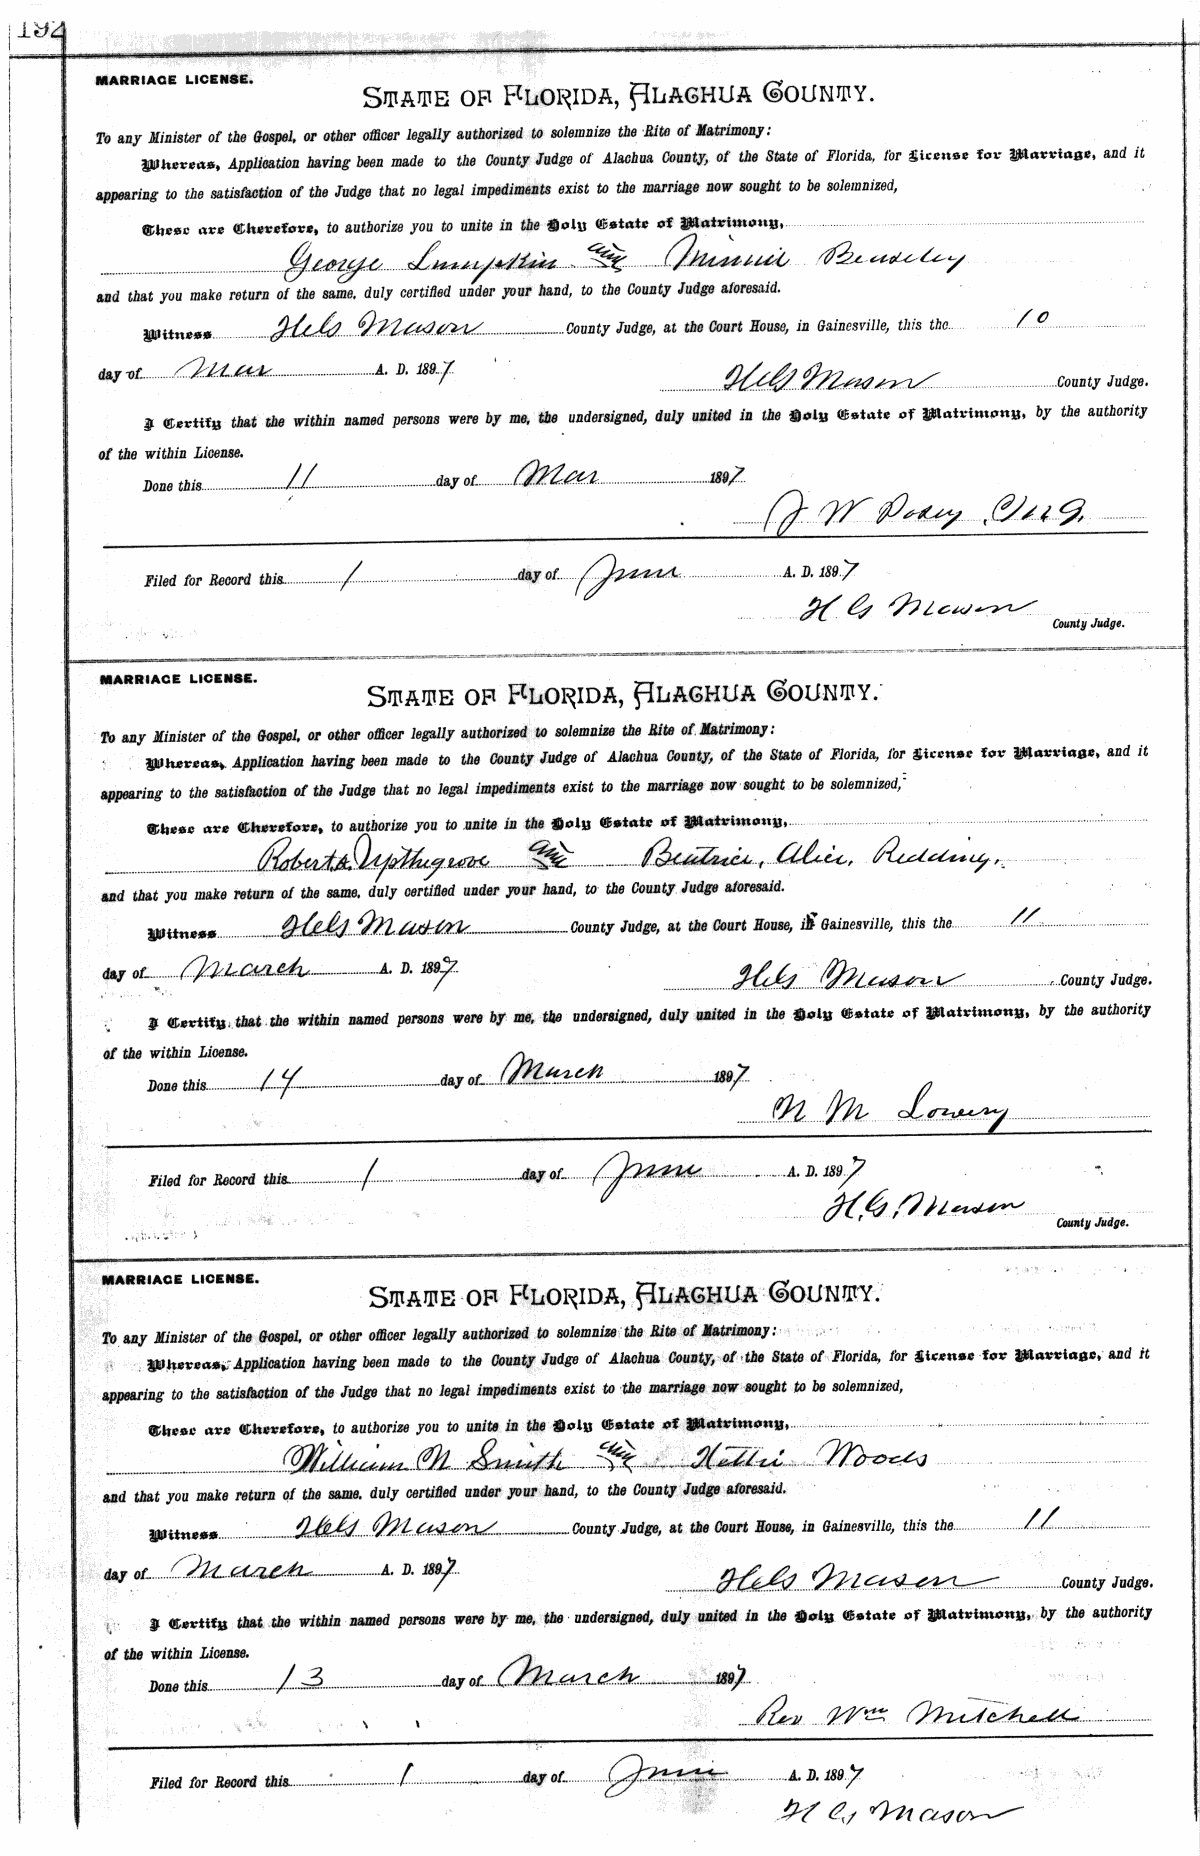 192
MARRIAGE LICENSE.
STATE OF FLORIDA, ALACHUA COUNTY.
To any Minister of the Gospel, or other officer legally authorized to solemnize the Rite of Matrimony:
Whereas, Application having been made to the County Judge of Alachua County, of the State of Florida, for License for Marriage, and it
appearing to the satisfaction of the Judge that no legal impediments exist to the marriage now sought to be solemnized,
These are Therefore, to authorize you to unite in the Holy Estate of Matrimony,
George Lumpkin and Minnie Beaseley
and that you make return of the same, duly certified under your hand, to the County Judge aforesaid.
Witness H G Mason County Judge, at the Court House, in Gainesville, this the 10
day of Mar A. D. 1897
H G Mason County Judge.
I Certify that the within named persons were by me, the undersigned, duly united in the Holy Estate of Matrimony, by the authority
of the within License.
Done this 11 day of Mar 1897
J W Posey
Filed for Record this 1 day of June A. D. 1897
H G Mason
County Judge.
MARRIAGE LICENSE.
STATE OF FLORIDA, ALACHUA COUNTY.
To any Minister of the Gospel, or other officer legally authorized to solemnize the Rite of Matrimony:
Whereas, Application having been made to the County Judge of Alachua County, of the State of Florida, for License for Marriage, and it
appearing to the satisfaction of the Judge that no legal impediments exist to the marriage now sought to be solemnized,
These are Therefore, to authorize you to unite in the Holy Estate of Matrimony,
Robert A. Upthegrove and Beatrice, Alice, Redding,
and that you make return of the same, duly certified under your hand, to the County Judge aforesaid.
Witness H G Mason County Judge, at the Court House, in Gainesville, this the 11
day of March A. D. 1897
H G Mason County Judge.
I Certify, that the within named persons were by me, the undersigned, duly united in the Holy Estate of Matrimony, by the authority
of the within License.
Done this 14 day of March 1897
N M Lowery
Filed for Record this 1 day of June A. D. 1897
H. G. Mason
County Judge.
MARRIAGE LICENSE.
STATE OF FLORIDA, ALACHUA COUNTY.
To any Minister of the Gospel, or other officer legally authorized to solemnize the Rite of Matrimony:
Whereas, Application having been made to the County Judge of Alachua County, of the State of Florida, for License for Marriage, and it
appearing to the satisfaction of the Judge that no legal impediments exist to the marriage now sought to be solemnized,
These are Therefore, to authorize you to unite in the Holy Estate of Matrimony,
William N Smith and Hattie Woods
and that you make return of the same, duly certified under your hand, to the County Judge aforesaid.
Witness H G Mason County Judge, at the Court House, in Gainesville, this the 11
day of March A. D. 1897
H G Mason County Judge.
I Certify that the within named persons were by me, the undersigned, duly united in the Holy Estate of Matrimony, by the authority
of the within License.
Done this 13 day of March 1897
Rev Wm Mitchell
Filed for Record this 1 day of June A. D. 1897
H G Mason